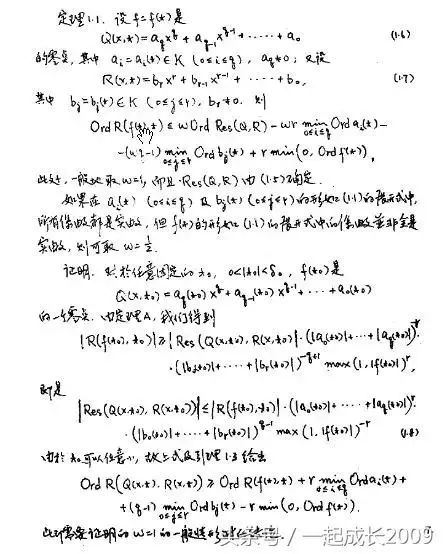 定理1.1. 设 f=f(t) 是
Q(x,t)=a_q x^q+a_{q-1} x^{q-1}+……+a_0 (1.6)
的零点, 其中 a_i=a_i(t)∈K (0≤i≤q), a_q≠0; 又设
R(x,t)=b_r x^r+b_{r-1} x^{r-1}+……+b_0, (1.7)
其中 b_j=b_j(t)∈K (0≤j≤r), b_r≠0. 则
Ord R(f(t),t) ≤ w Ord Res(Q,R) - wr min_{0≤i≤q} Ord a_i(t) -
-(wq-1) min_{0≤j≤r} Ord b_j(t) + r min(0, Ord f(t)),
此处, 一般地取 w=1, 而且 Res(Q,R) 由 (1.5) 确定.
如果在 a_i(t) (0≤i≤q) 及 b_j(t) (0≤j≤r) 的形如 (1.1) 的展开式中,
所有系数都是实数, 但 f(t) 的形如 (1.1) 的展开式中的系数并非全是
实数, 则可取 w=1/2.
证明. 对于任意固定的 t_0, 0<|t_0|<δ_0, f(t_0) 是
Q(x,t_0)=a_q(t_0) x^q+a_{q-1}(t_0) x^{q-1}+……+a_0(t_0)
的一个零点. 由定理A, 我们得到
|R(f(t_0),t_0)| ≥ |Res(Q(x,t_0), R(x,t_0))|·(|a_0(t_0)|+……+|a_q(t_0)|)^{-r}·
·(|b_0(t_0)|+……+|b_r(t_0)|)^{-q+1} max(1,|f(t_0)|)^r,
即是
|Res(Q(x,t_0), R(x,t_0))| ≤ |R(f(t_0),t_0)|·(|a_0(t_0)|+……+|a_q(t_0)|)^r·
·(|b_0(t_0)|+……+|b_r(t_0)|)^{q-1} max(1,|f(t_0)|)^{-r} (1.8)
由于 t_0 可以任意小, 故上式及引理1.3给出
Ord R(Q(x,t), R(x,t)) ≥ Ord R(f(t),t) + r min_{0≤i≤q} Ord a_i(t) +
+(q-1) min_{0≤j≤r} Ord b_j(t) - r min(0, Ord f(t)).
此即需要证明的 w=1 的一般情形
头条号 / 一起成长2009